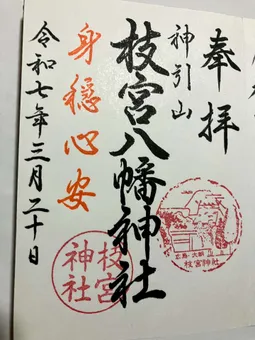 奉拝
神引山
枝宮八幡神社
身穏心安
令和七年三月二十日
枝宮神社
枝宮神社